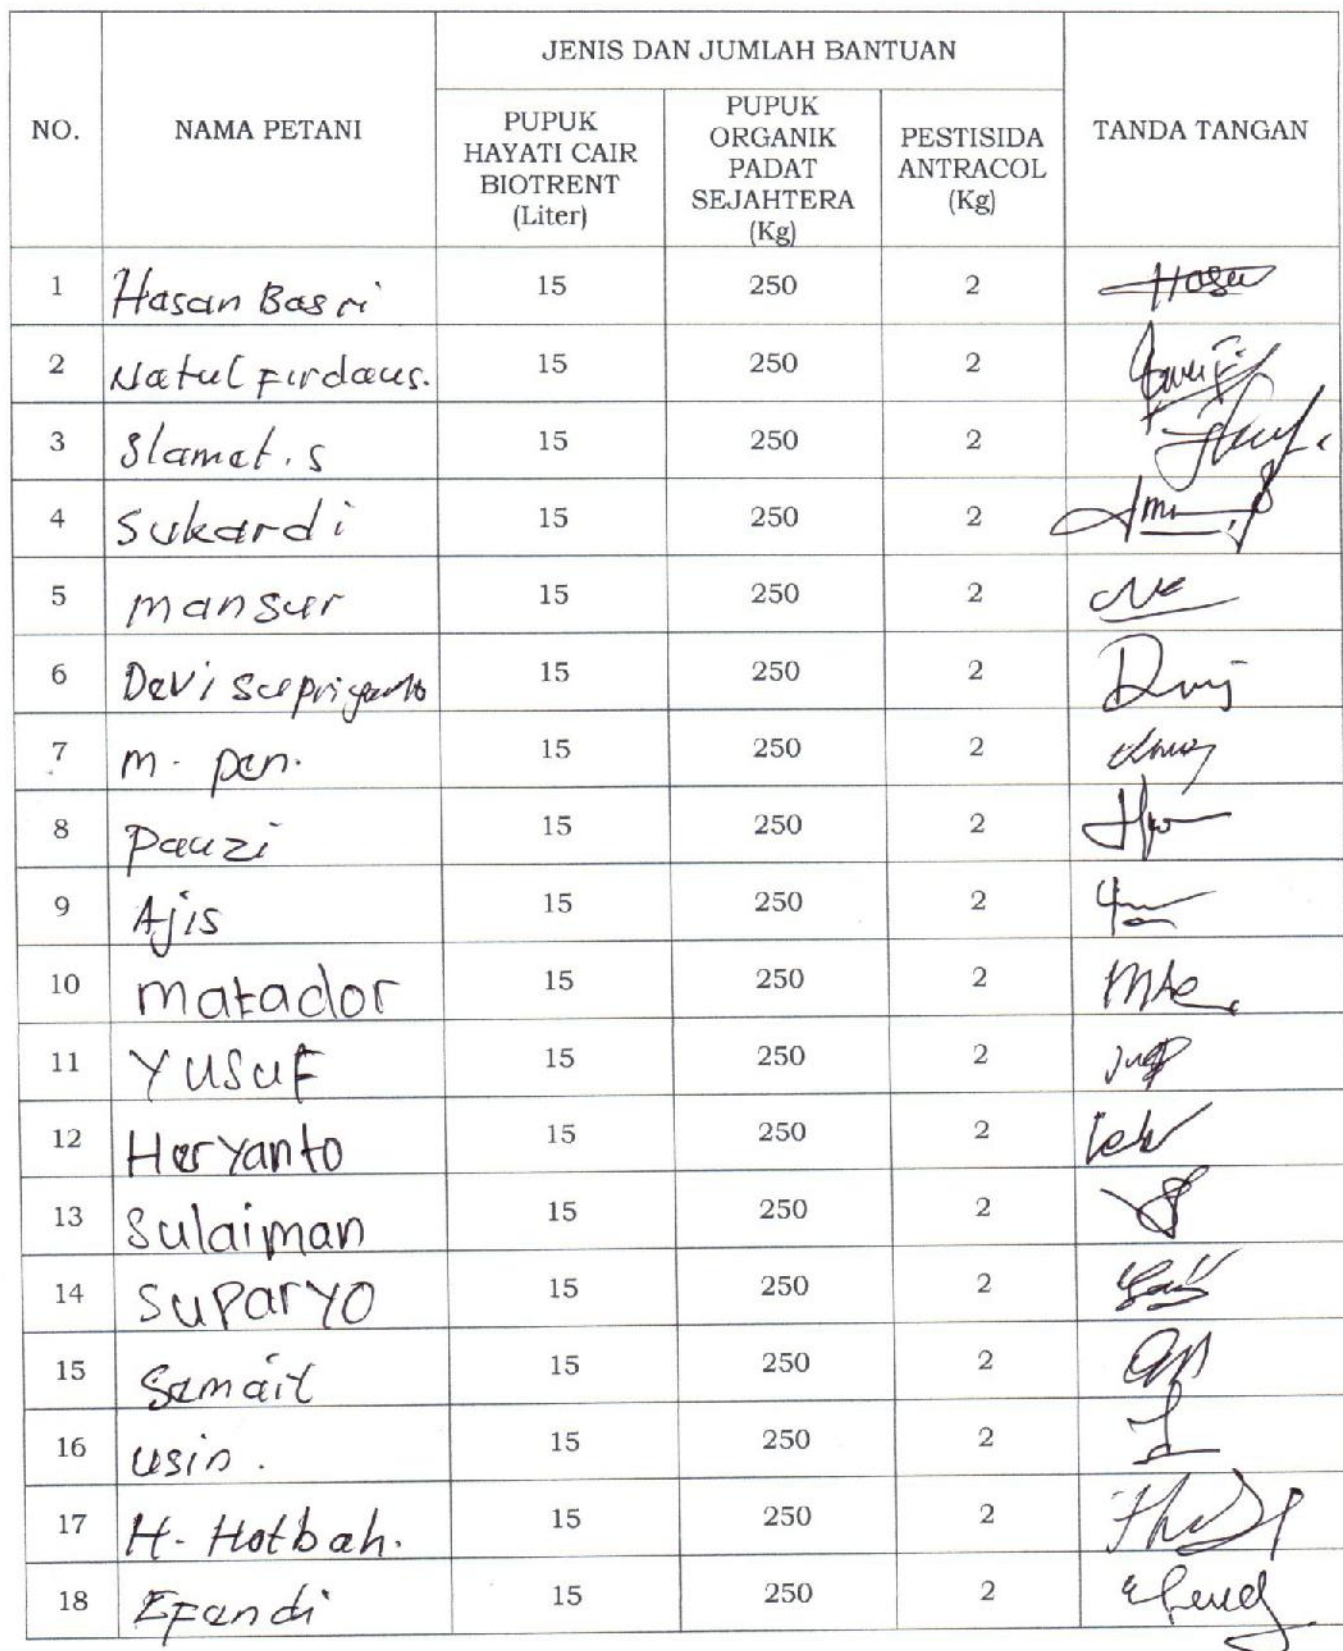 JENIS DAN JUMLAH BANTUAN
NO. NAMA PETANI PUPUK HAYATI CAIR BIOTRENT (Liter) PUPUK ORGANIK PADAT SEJAHTERA (Kg) PESTISIDA ANTRACOL (Kg) TANDA TANGAN
1 Hasan Basri 15 250 2
2 Natul Firdaus. 15 250 2
3 Slamet. S 15 250 2
4 Sukardi 15 250 2
5 Mansur 15 250 2
6 Devi Supriyanto 15 250 2
7 M. Pen. 15 250 2
8 Pauzi 15 250 2
9 Ajis 15 250 2
10 Matador 15 250 2
11 YUSUF 15 250 2
12 Heryanto 15 250 2
13 Sulaiman 15 250 2
14 SUPARYO 15 250 2
15 15 250 2
16 Usin. 15 250 2
17 H. Hotbah. 15 250 2
18 Efandi 15 250 2